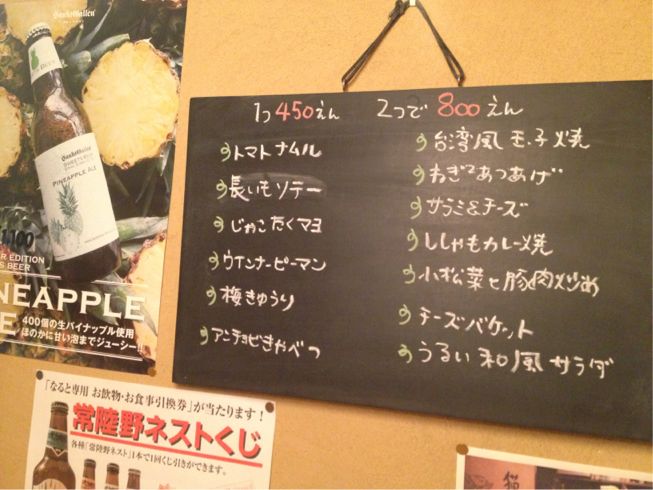 SanktGallen
SanktGallen
PINEAPPLE ALE
1,100
R EDITION
S BEER
NEAPPLE
E 400個の生パイナップル使用
ほのかに甘い泡までジューシー!!!
1つ 450えん 2つで 800えん
トマトナムル
長いもソテー
じゃこたくマヨ
ウインナーピーマン
梅きゅうり
アンチョビきゃべつ
台湾風玉子焼
ねぎ2あつあげ
サラミ&チーズ
ししゃもカレー焼
小松菜と豚肉炒め
チーズバケット
うるい和風サラダ
「なると専用 お飲物・お食事引換券」が当たります!
常陸野ネストくじ
各種「常陸野ネスト」1本で1回くじ引きができます。
猫